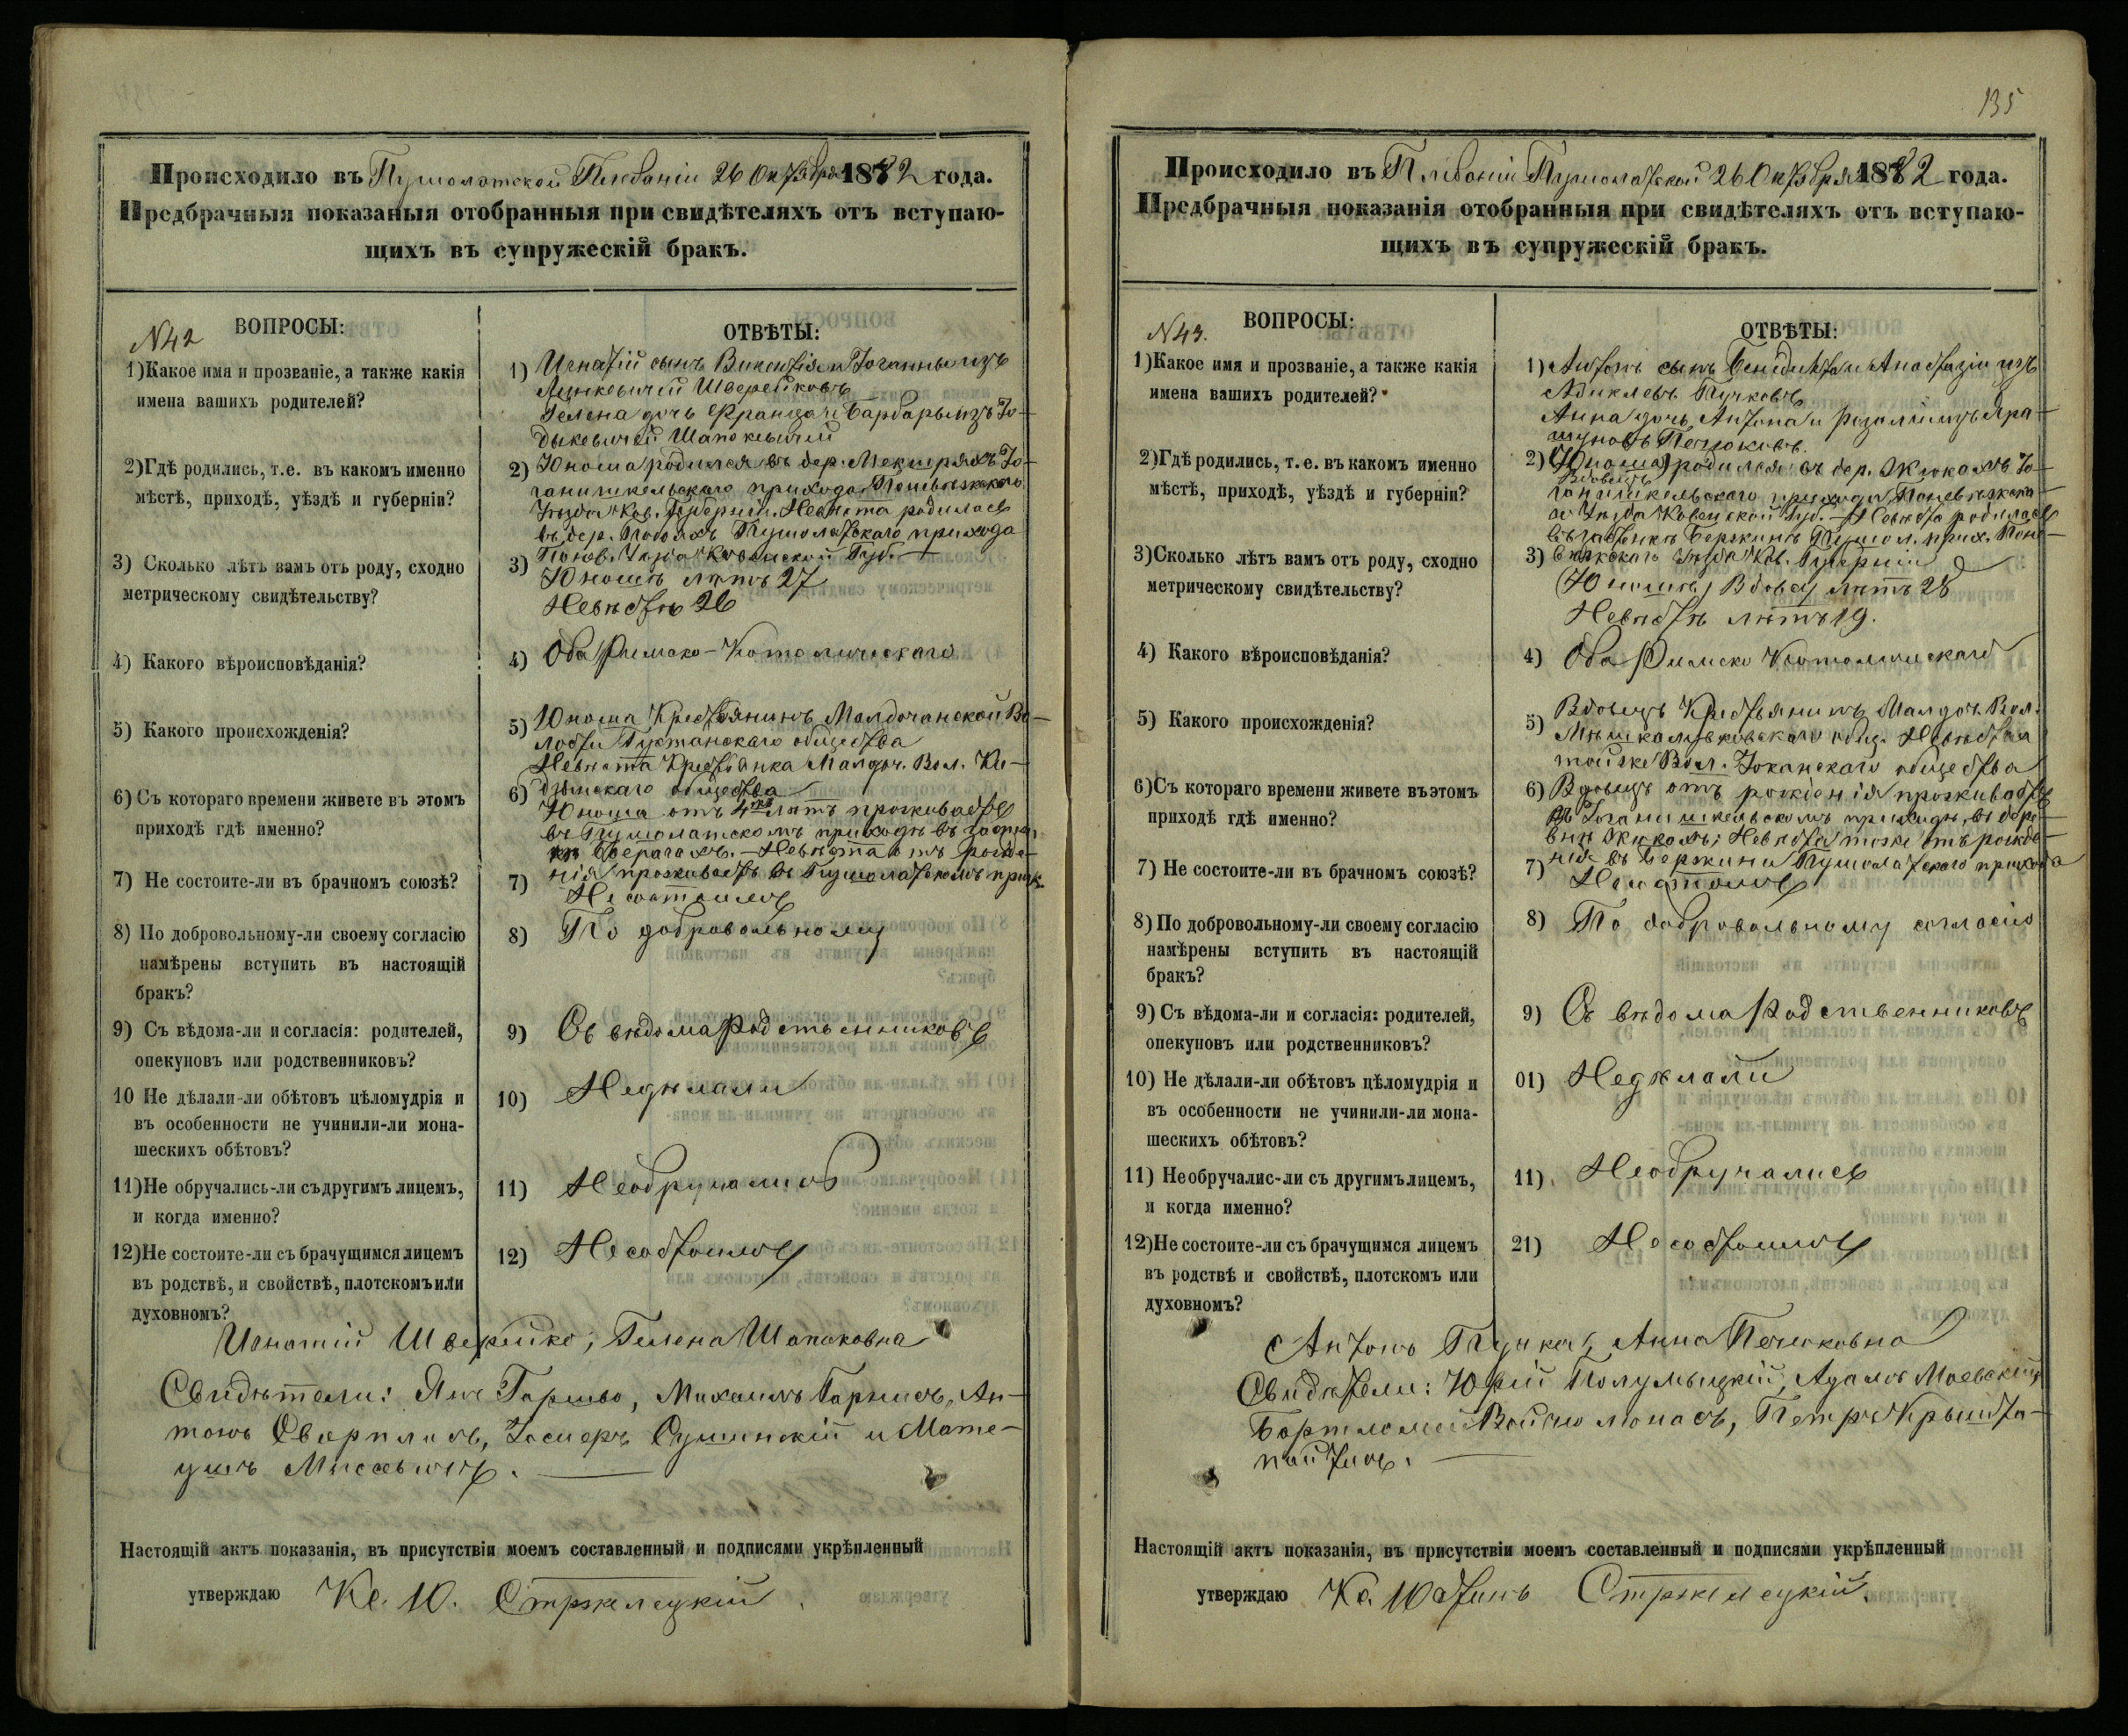 Происходило въ Пушолотской Плебаніи 26 Октября 1882 года.
Предбрачныя показаныя отобранныя при свидѣтеляхъ отъ вступаю-
щихъ въ супружескій бракъ.
N42
ВОПРОСЫ:
1) Какое имя и прозваніе, а также какія
имена вашихъ родителей?
2) Гдѣ родились, т.е. въ какомъ именно
мѣстѣ, приходѣ, уѣздѣ и губерніи?
3) Сколько лѣтъ вамъ отъ роду, сходно
метрическому свидѣтельству?
4) Какого вѣроисповѣданія?
5) Какого происхожденія?
6) Съ котораго времени живете въ этомъ
приходѣ гдѣ именно?
7) Не состоите-ли въ брачномъ союзѣ?
8) По добровольному-ли своему согласію
намѣрены вступить въ настоящій
бракъ?
9) Съ вѣдома-ли и согласія: родителей,
опекуновъ или родственниковъ?
10 Не дѣлали-ли обѣтовъ цѣломудрія и
въ особенности не учинили-ли мона-
шескихъ обѣтовъ?
11) Не обручались-ли съ другимъ лицемъ,
и когда именно?
12) Не состоите-ли съ брачущимся лицемъ
въ родствѣ, и свойствѣ, плотскомъ или
духовномъ?
ОТВѢТЫ:
1) Игнатій сынъ Викентія и Іоганны изъ
Шверейковъ
Гелена дочь Франца и Барбары изъ Іо-
2) Юноша родился въ дер. Іо-
ганишкельскаго прихода Поневѣжскаго
Уѣзда Ков. Губерніи. Невѣста родилась
въ дер. Пушолатскаго прихода
Понев. Уѣзда Ковенской Губ.
3) Юношѣ лѣтъ 27
Невѣстѣ 26
4) Оба Римско-Католическаго
5) Юноша Крестьянинъ Во-
лости общества
Невѣста Крестьянка Вол.
общества
6) Юноша отъ 4хъ лѣтъ проживаетъ
въ Пушолатскомъ приходѣ въ
Невѣста отъ рожде-
нія проживаетъ въ Пушолатскомъ прих.
7) Несостоимъ
8) По добровольному
9) Съ вѣдома Родственниковъ
10) Недѣлали
11) Необручались
12) Несостоимъ
Игнатій Шверейко, Гелена
Свидѣтели: Янъ Михаилъ Ан-
тонъ и Мате-
ушъ
Настоящій актъ показанія, въ присутствіи моемъ составленный и подписями укрѣпленный
утверждаю Кс. Ю. Стржелецкій.
135
Происходило въ Плебаніи Пушолатской 26 Октября 1882 года.
Предбрачныя показанія отобранныя при свидѣтеляхъ отъ вступаю-
щихъ въ супружескій бракъ.
N43.
ВОПРОСЫ:
1) Какое имя и прозваніе, а также какія
имена вашихъ родителей?
2) Гдѣ родились, т.е. въ какомъ именно
мѣстѣ, приходѣ, уѣздѣ и губерніи?
3) Сколько лѣтъ вамъ отъ роду, сходно
метрическому свидѣтельству?
4) Какого вѣроисповѣданія?
5) Какого происхожденія?
6) Съ котораго времени живете въ этомъ
приходѣ гдѣ именно?
7) Не состоите-ли въ брачномъ союзѣ?
8) По добровольному-ли своему согласію
намѣрены вступить въ настоящій
бракъ?
9) Съ вѣдома-ли и согласія: родителей,
опекуновъ или родственниковъ?
10) Не дѣлали-ли обѣтовъ цѣломудрія и
въ особенности не учинили-ли мона-
шескихъ обѣтовъ?
11) Необручалис-ли съ другимъ лицемъ,
и когда именно?
12) Не состоите-ли съ брачущимся лицемъ
въ родствѣ и свойствѣ, плотскомъ или
духовномъ?
ОТВѢТЫ:
1) Антонъ сынъ Бенедикта и Анастазіи изъ
Пучковъ
Анна дочь Антона и Розаліи изъ
2) (Юноша) родился въ дер. Іо-
Вдовецъ
ганишкельскаго прихода Поневѣжска-
го Уѣзда Ковенской Губ. Невѣста родилась
въ Пушол. прих. Поне-
вѣжскаго Уѣзда Ков. Губерніи
3) (Юношѣ) Вдовцу лѣтъ 28
Невѣстѣ лѣтъ 19.
4) Оба Римско Католическаго
5) Вдовецъ Крестьянинъ Вол.
общ. Невѣста
тойже Вол. общества
6) Вдовецъ отъ рожденія проживаетъ
въ Іоганишкельскомъ приходѣ, въ дере-
внѣ Невѣста тоже отъ рожде-
нія въ Пушолатскаго прихода
7) Несостоимъ
8) По добровольному согласію
9) Съ вѣдома Родственниковъ
01) Недѣлали
11) Необручались
21) Несостоимъ
Антонъ Пучка, Анна
Свидѣтели: Юрій Адамъ Маевскій,
Петръ
Настоящій актъ показанія, въ присутствіи моемъ составленный и подписями укрѣпленный
утверждаю Кс. Юстинъ Стржелецкій.